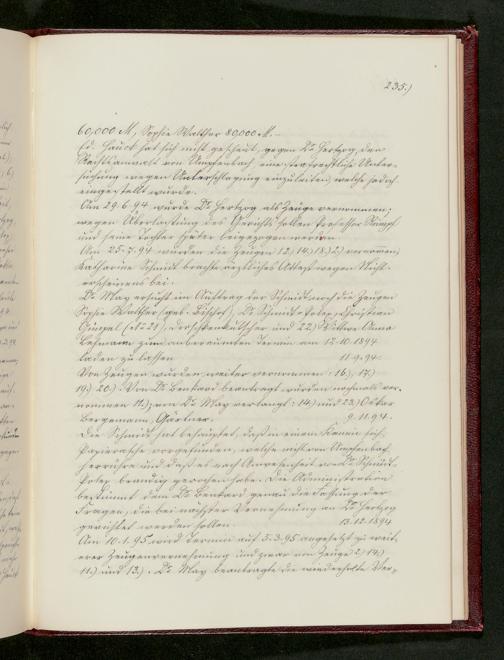 235.)
60,000 M, Sophie Walther 80,000 M.–
Ed. Hauck hat sich nicht gescheut, gegen Dr. Hertzog, den
Rechtsanwalt von Umpfenbach, eine strafrechtliche Unter-
suchung wegen Unterschlagung einzuleiten, welche jedoch
eingestellt wurde.
Am 29.6.94 wurde Dr. Hertzog als Zeuge vernommen;
wegen Überlastung des Gerichts sollen Professor
und seine Tochter später beigezogen werden.
Am 25.7.94 wurden die Zeugen 12.) 14.) 18.) 2.) vernommen;
Katharine Schmidt brachte ärztliches Attest wegen Nicht-
erscheinens bei.
Dr. May ersucht im Auftrag der Schmidt noch die Zeugen
Sophie Walther (geb. Bischof), Dr. Schmidt-Polex, Christian
(No 21), Droschkenkutscher und 22.) Wittwe Anna
Lehmann zum anberaumten Termin am 12.10.1894
laden zu lassen 11.9.94.
Von Zeugen wurden weiter vernommen: 16.), 17.)
19.) 20.) Von Dr. Benkard beantragt, würden nochmals ver-
nommen 11.); von Dr. May verlangt: 14.) und 23.) Oskar
Bergemann, Gärtner. 9.11.94.
Die Schmidt hat behauptet, daß in einem Kamin sich
Papierasche vorgefunden, welche nicht von Umpfenbach
herrühre und daß es nach Anwesenheit von Dr. Schmidt-
Polex brandig gerochen habe. Die Administration
bestimmt dem Dr. Benkard genau die Fassung der
Fragen, die bei nächster Vernehmung an Dr. Hertzog
gerichtet werden sollen. 13.12.1894
Am 10.1.95 wird Termin auf 5.3.95 angesetzt zu weit-
erer Zeugenvernehmung und zwar von Zeuge 2.) 14.)
11.) und 13.). Dr. May beantragte die wiederholte Ver-